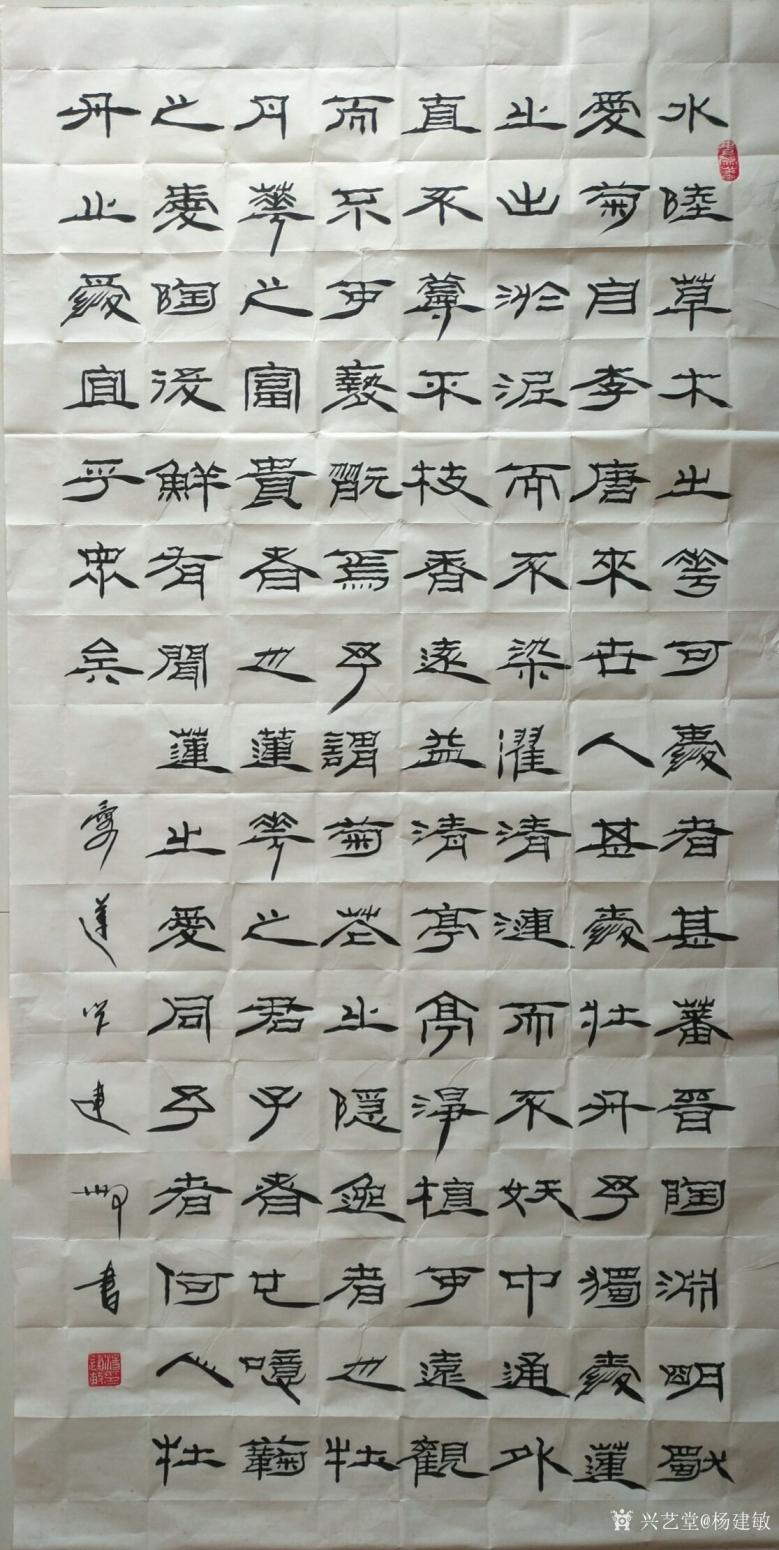 水陸草木之花可愛者甚蕃晉陶淵明獨
愛菊自李唐來世人甚愛牡丹予獨愛蓮
之出淤泥而不染濯清漣而不妖中通外
直不蔓不枝香遠益清亭亭淨植可遠觀
而不可褻翫焉予謂菊花之隱逸者也牡
丹華之富貴者也蓮花之君子者也噫蘜
之愛陶後鮮有聞蓮之愛同予者何人牡
丹之愛宜乎眾矣
愛蓮說建敏書
兴艺堂@杨建敏